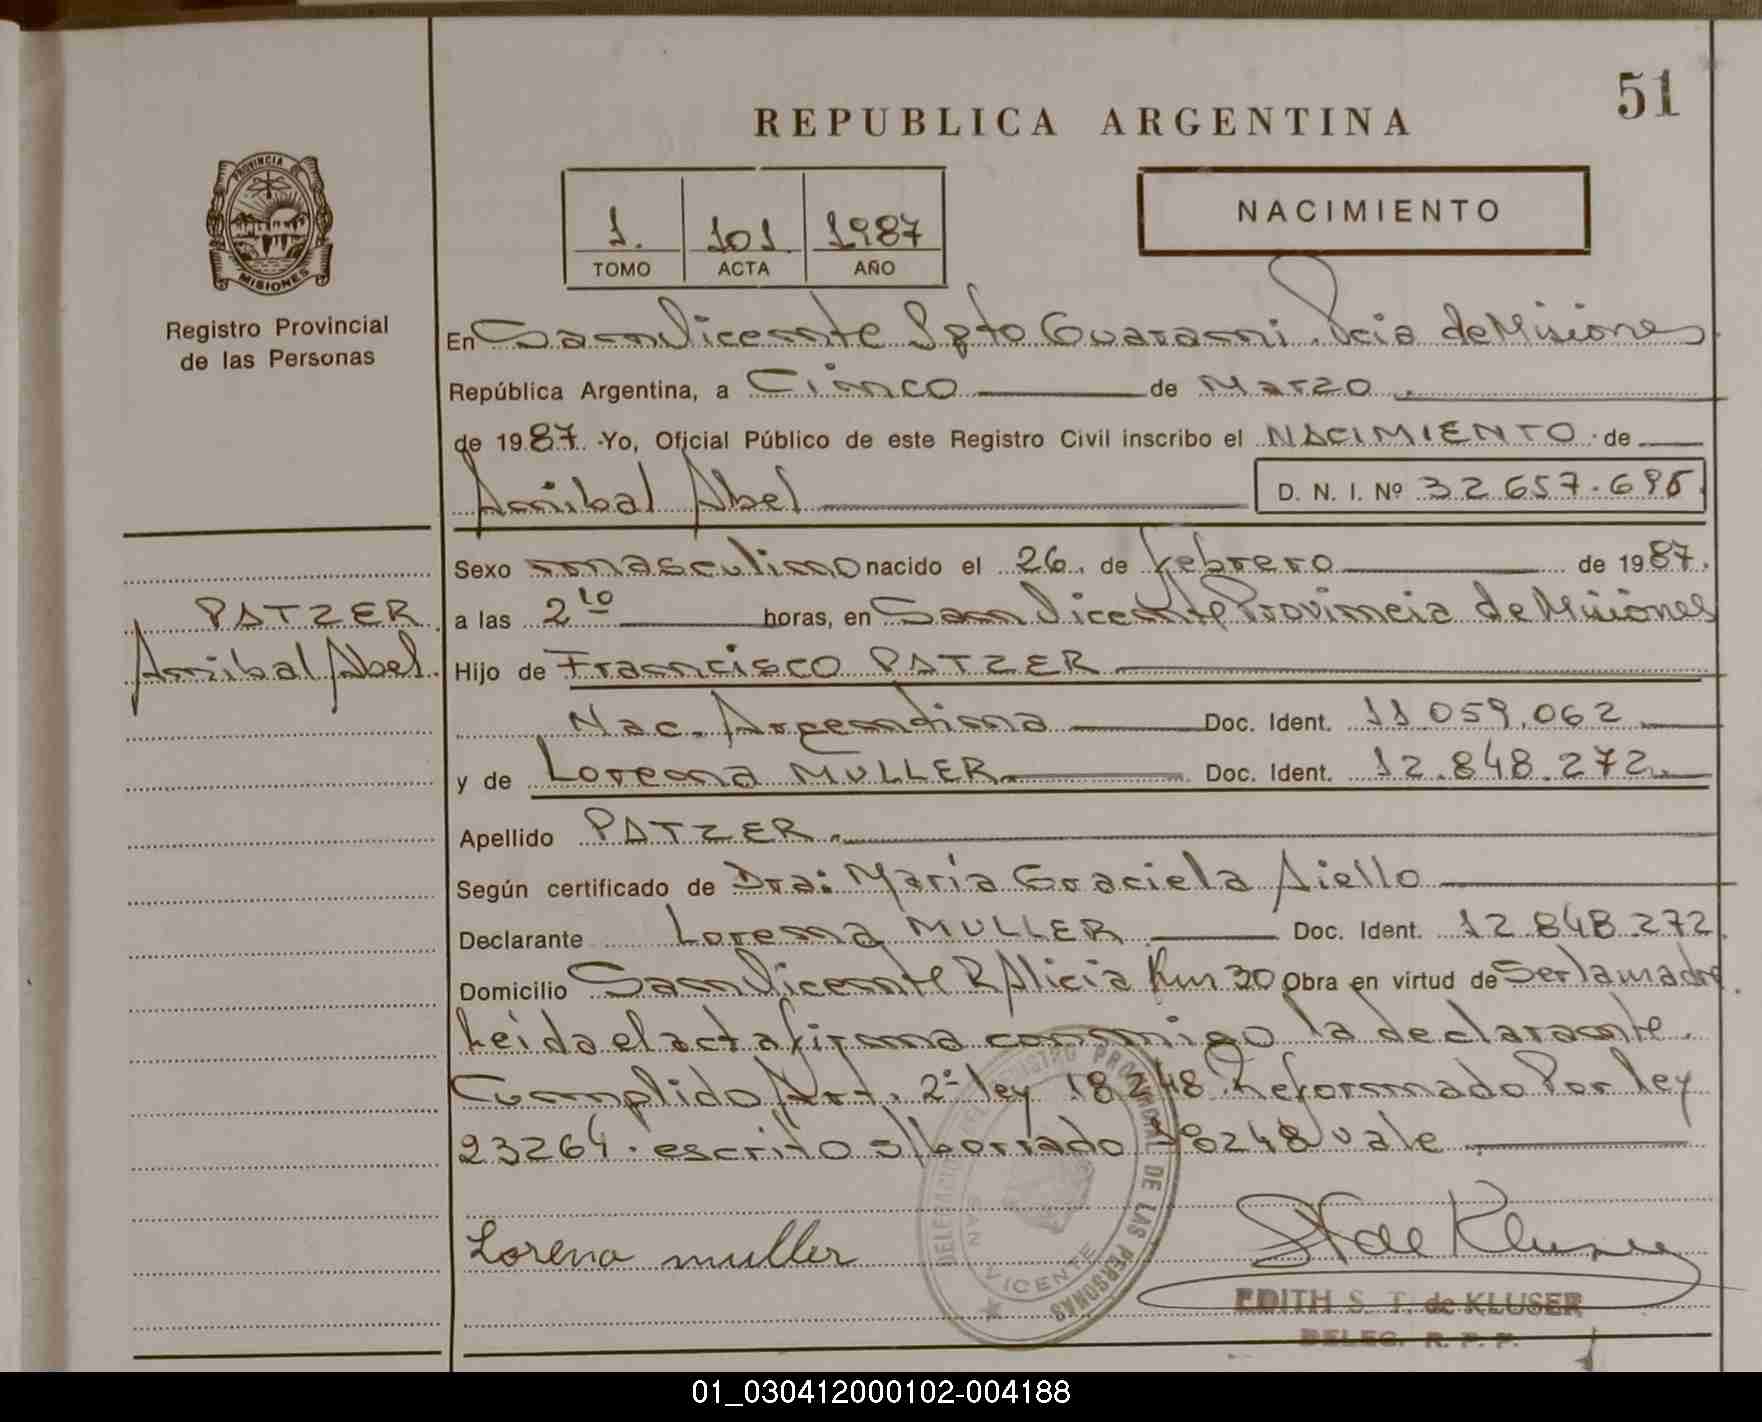 51
REPUBLICA ARGENTINA
PROVINCIA DE
MISIONES
Registro Provincial
de las Personas
NACIMIENTO
1. 101 1987
TOMO ACTA AÑO
En San Vicente Dpto Guarani. Pcia de Misiones
República Argentina, a Cinco de Marzo
de 1987. Yo, Oficial Público de este Registro Civil inscribo el NACIMIENTO de
Annibal Abel D. N. I. Nº 32 657.695
Sexo masculino nacido el 26. de febrero de 1987.
a las 2 10 horas, en San Vicente Provincia de Misiones
PATZER
Annibal Abel.
Hijo de Francisco PATZER
Nac. Argentina Doc. Ident. 11 059.062
y de Lorena MULLER Doc. Ident. 12.848.272
Apellido PATZER.
Según certificado de Dra: María Graciela Aiello
Declarante Lorena MULLER Doc. Ident. 12 848 272
Domicilio San Vicente P Alicia Km 30 Obra en virtud de Ser la madre
Leída el acta firma conmigo la declarante.
Cumplido Art. 2º ley 18248 Reformado Por ley
23264. escrito s/borrado 18248 vale
Lorena muller
REGISTRO PROVINCIAL DE LAS PERSONAS
DELEGACION
SAN VICENTE
S T de Kluser
EDITH S. T. de KLUSER
DELEG. R. P. P.
01_030412000102-004188